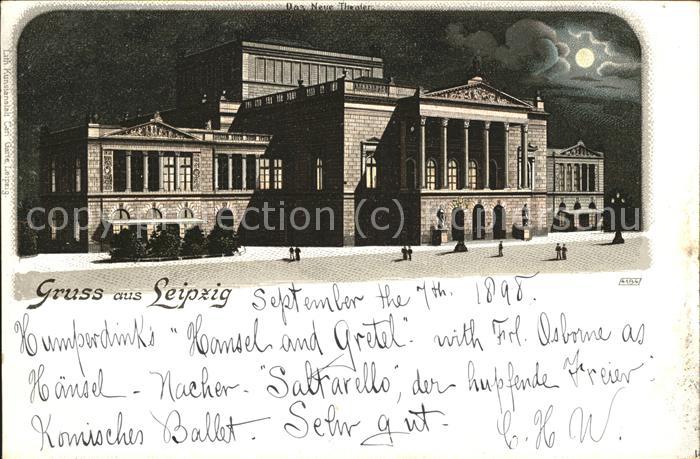 Das Neue Theater.
Lith. Kunstanstalt Carl Garte, Leipzig
copyright Collection (C) Kropinski
Gruss aus Leipzig
September the 7th. 1898.
Humperdink's "Hansel and Gretel" - with Frl. Osborne as
Hänsel - Nacher - "Saltarello", der hupfende Freier -
Komisches Ballet. Sehr gut -
C. H. W.